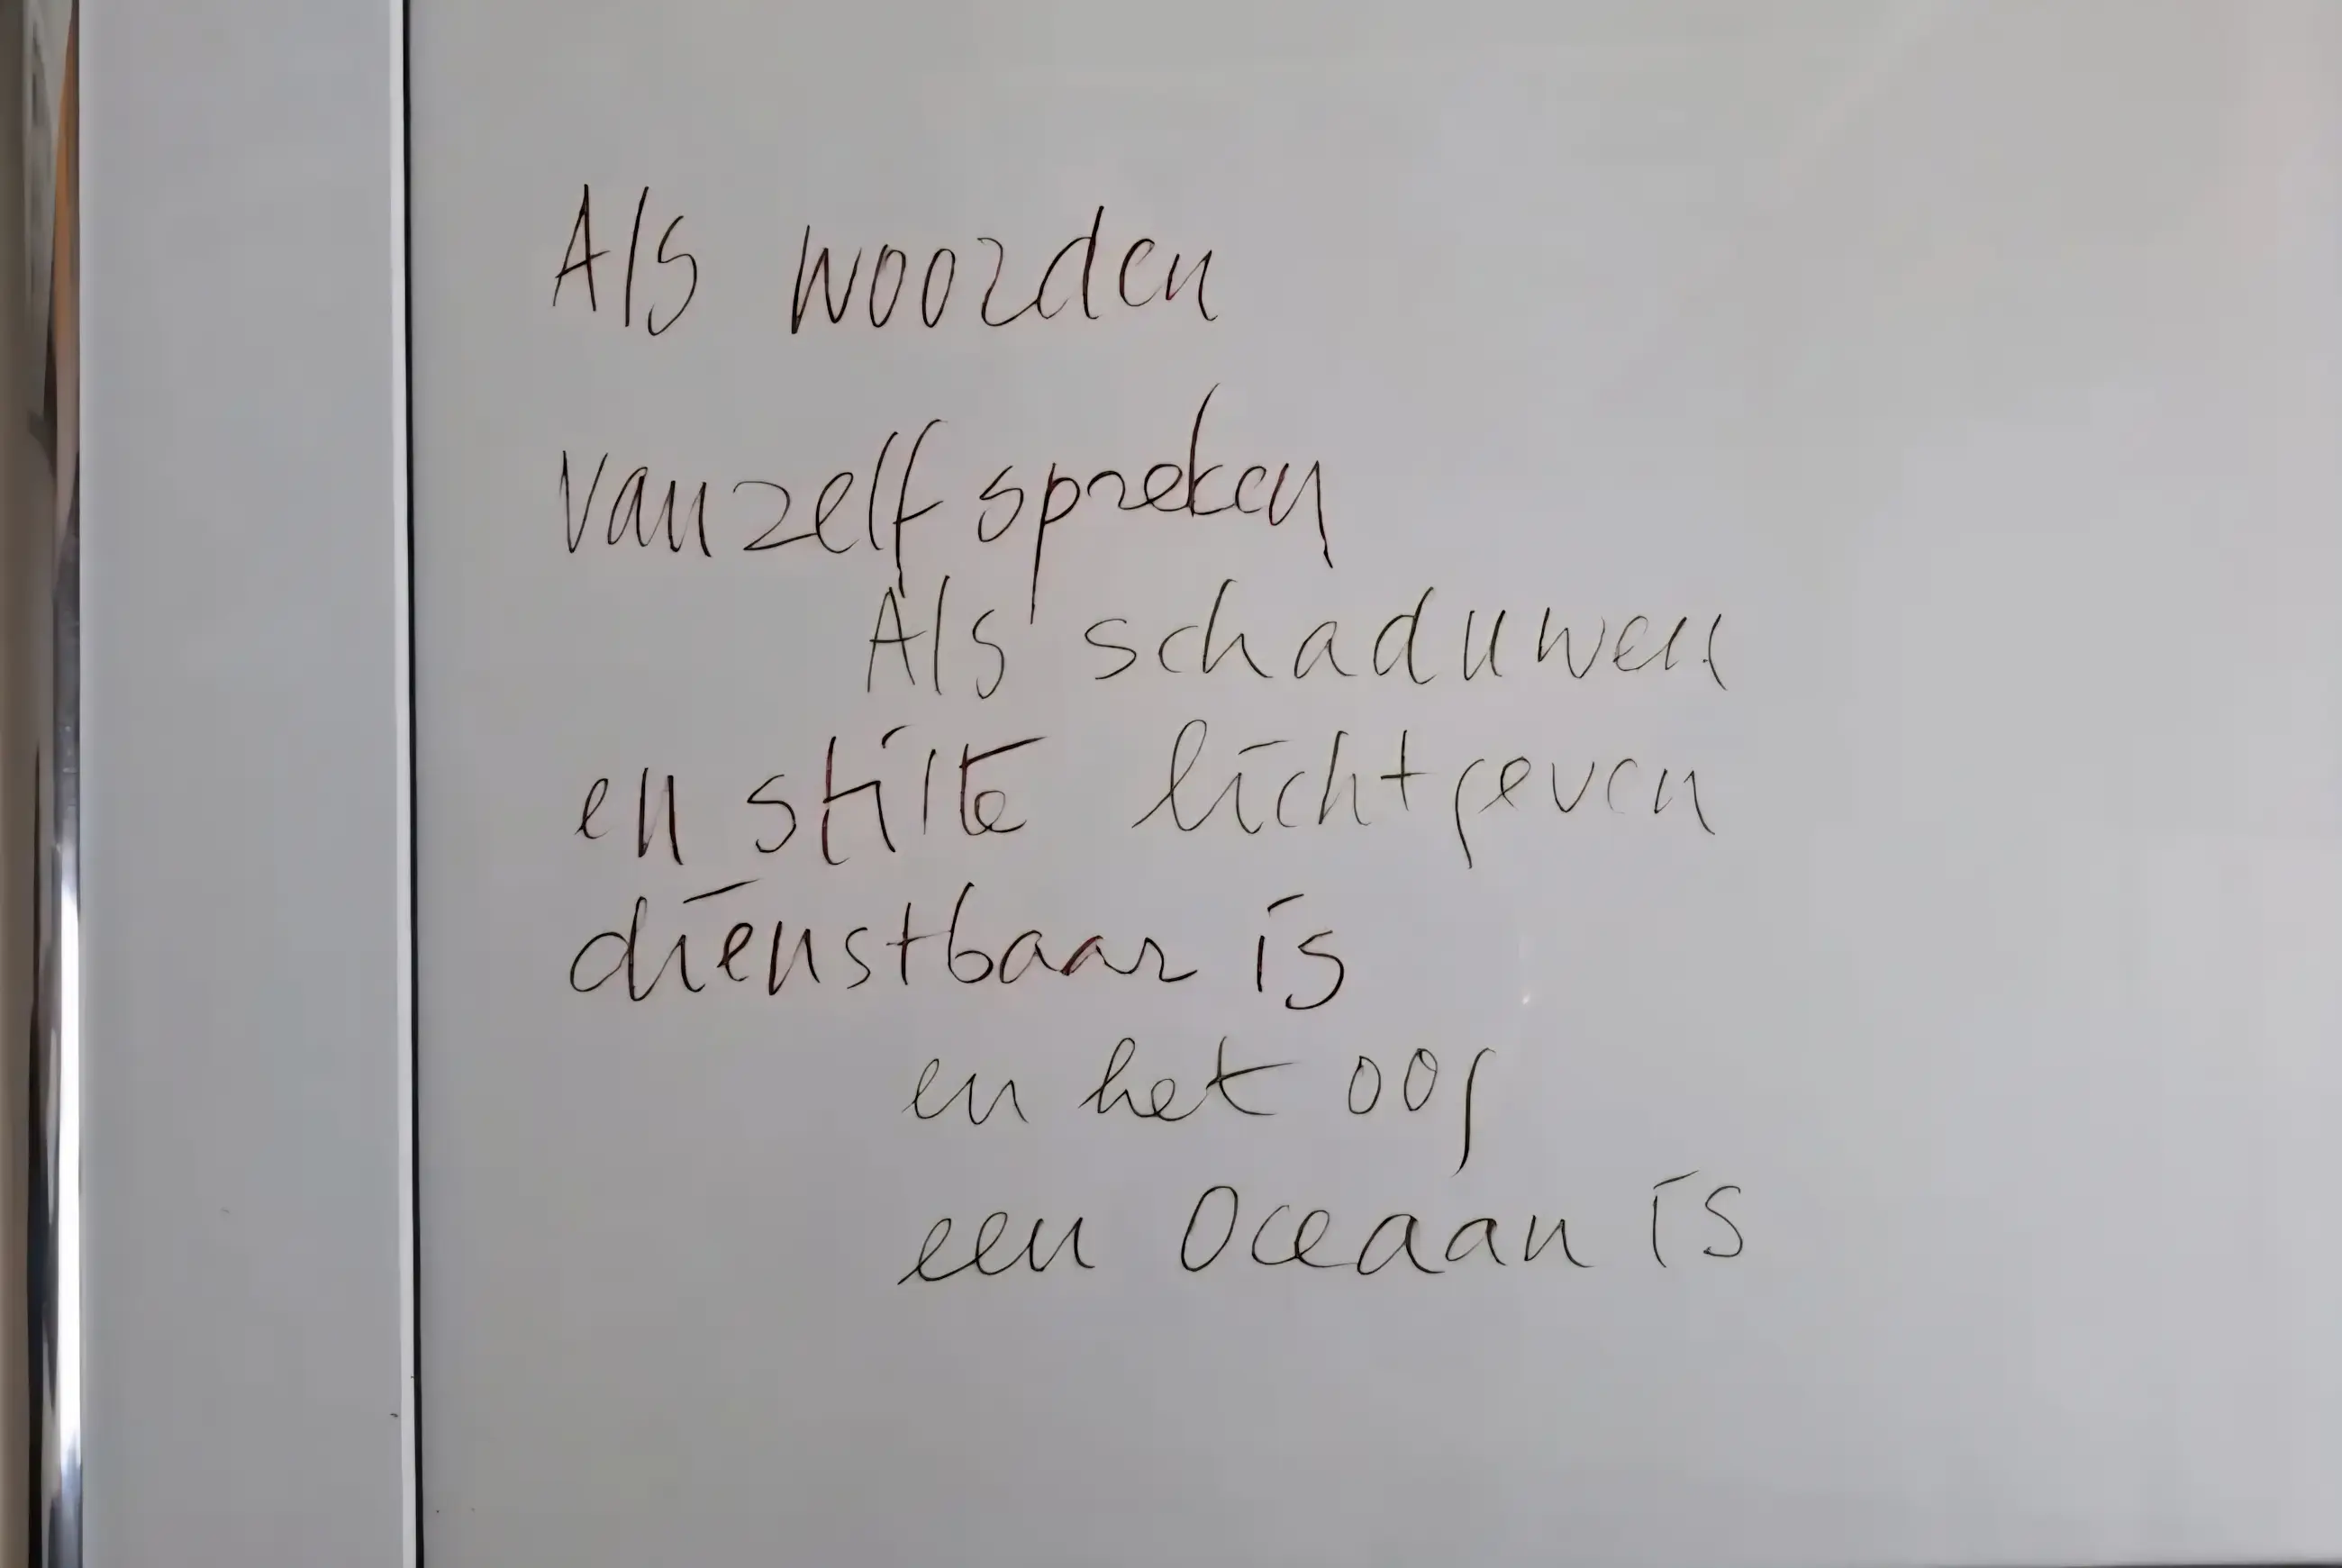 Als woorden
vanzelf spreken
Als schaduwen
en stilte lichtgeven
dienstbaar is
en het oog
een Oceaan is